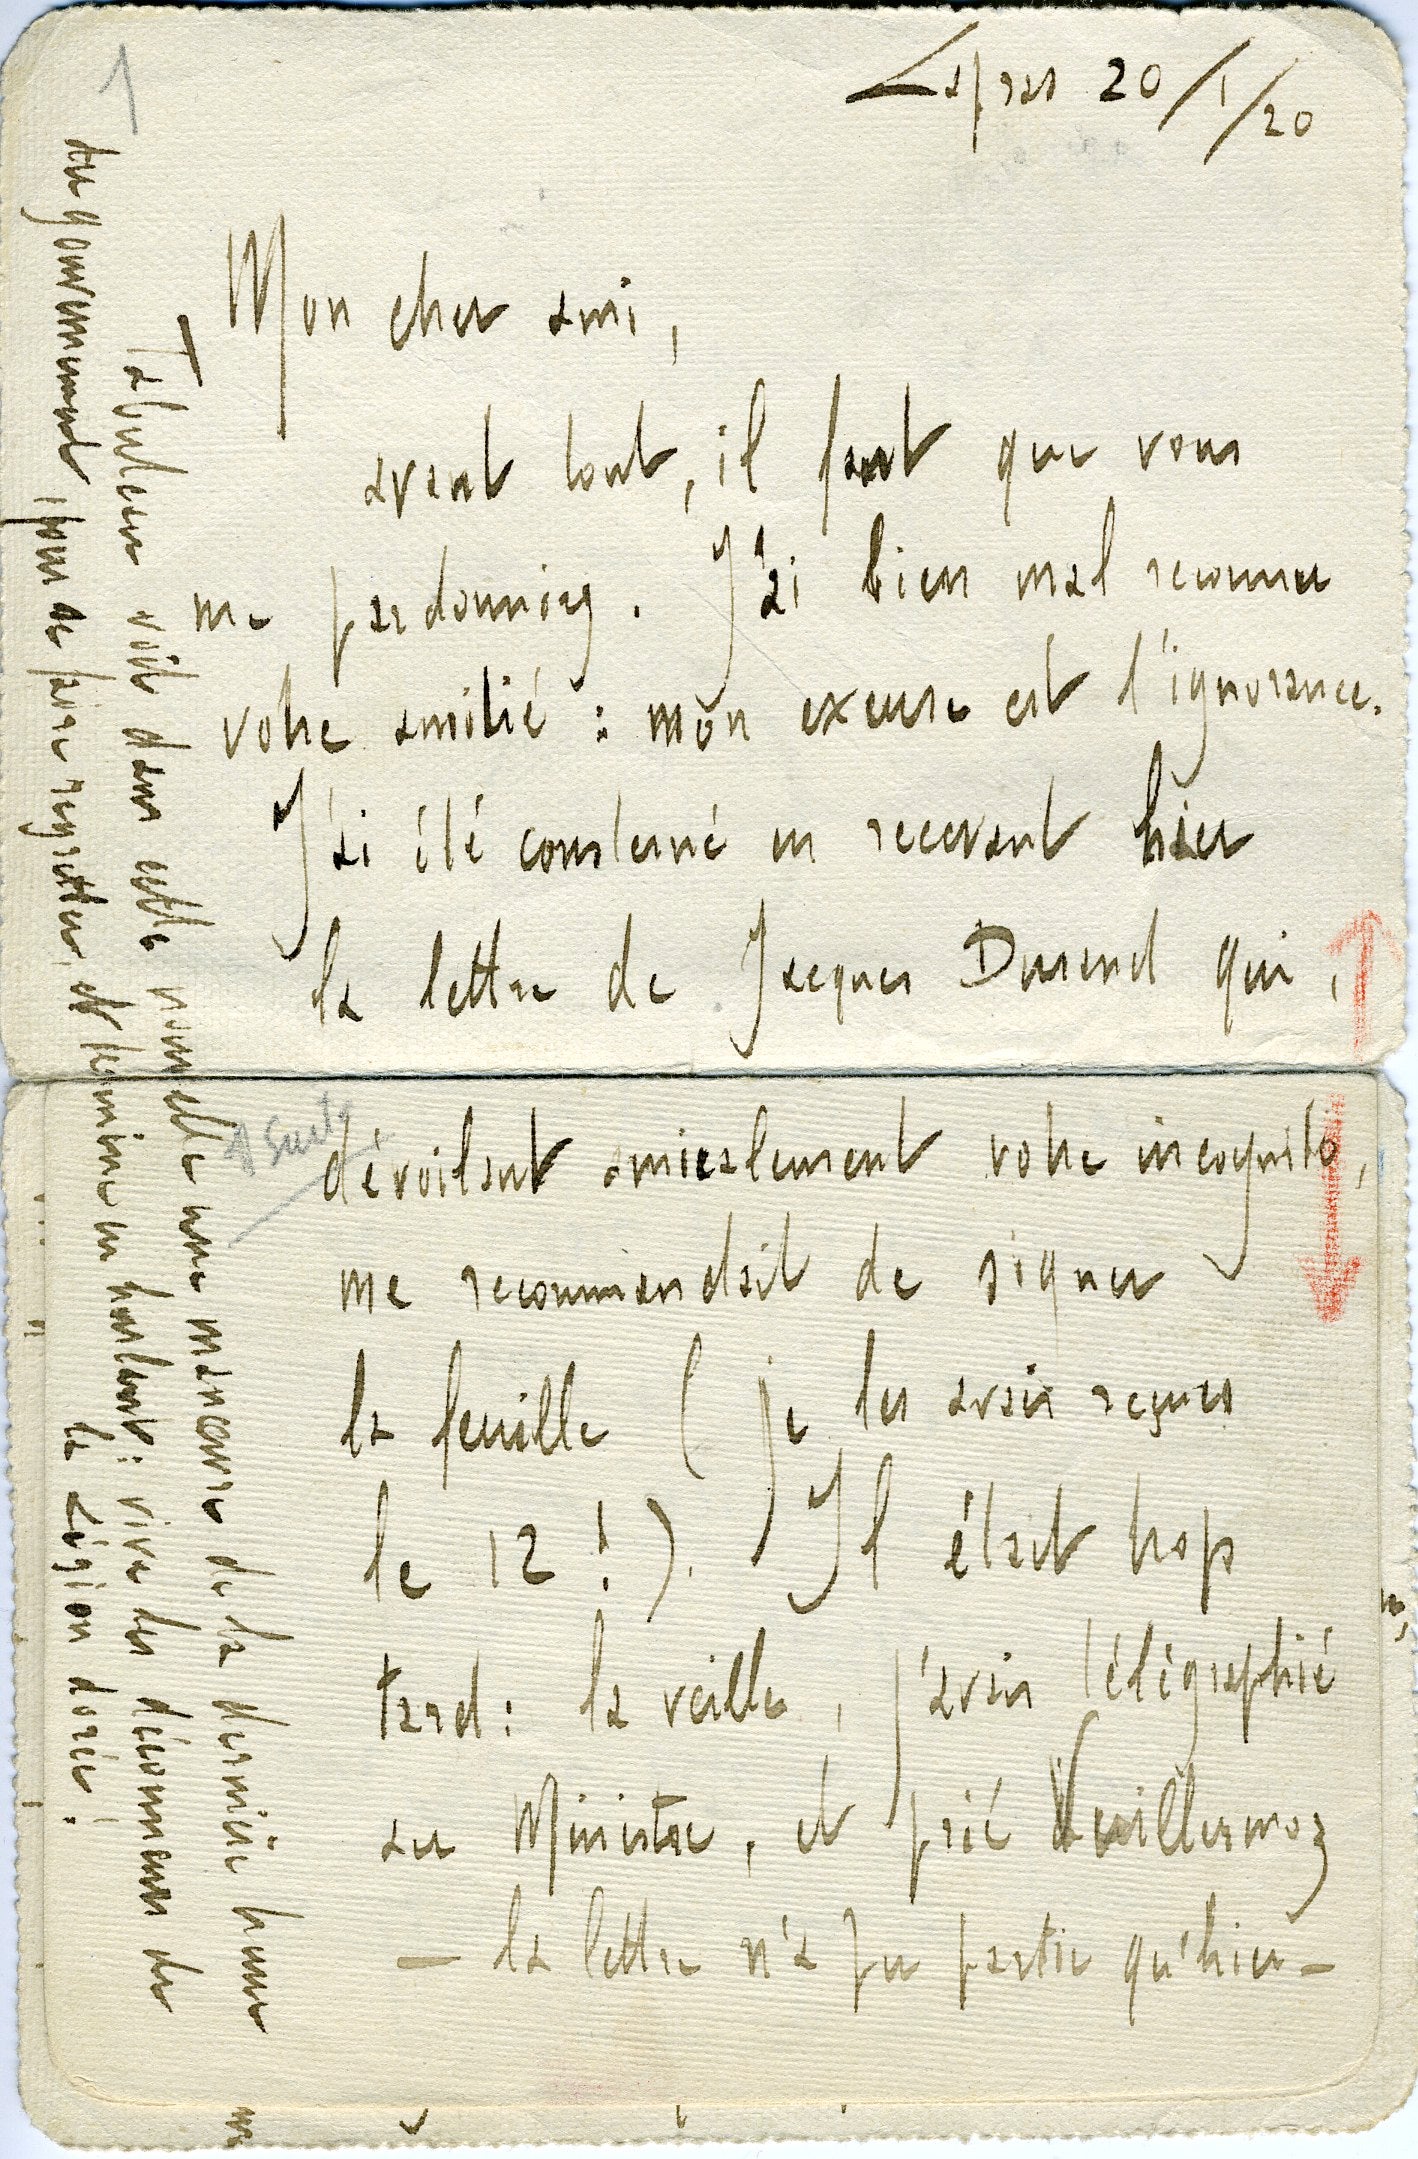 1
Lapras 20/1/20
Mon cher ami,
avant tout, il faut que vous
me pardonniez. J'ai bien mal reconnu
votre amitié : mon excuse est l'ignorance.
J'ai été consterné en recevant hier
la lettre de Jacques Durand qui,
dévoilant amicalement votre incognito,
me recommandait de signer
la feuille (je les avais reçues
le 12 !). Il était trop
tard : la veille, j'avais télégraphié
au Ministre, et prié Vuillermoz
— la lettre n'a pu partir qu'hier —
Tabuteau voit dans cette nouvelle une manœuvre de la dernière heure
du gouvernement, pour se faire regretter, et termine en hurlant : vive les décommeux de
la Légion dorée !